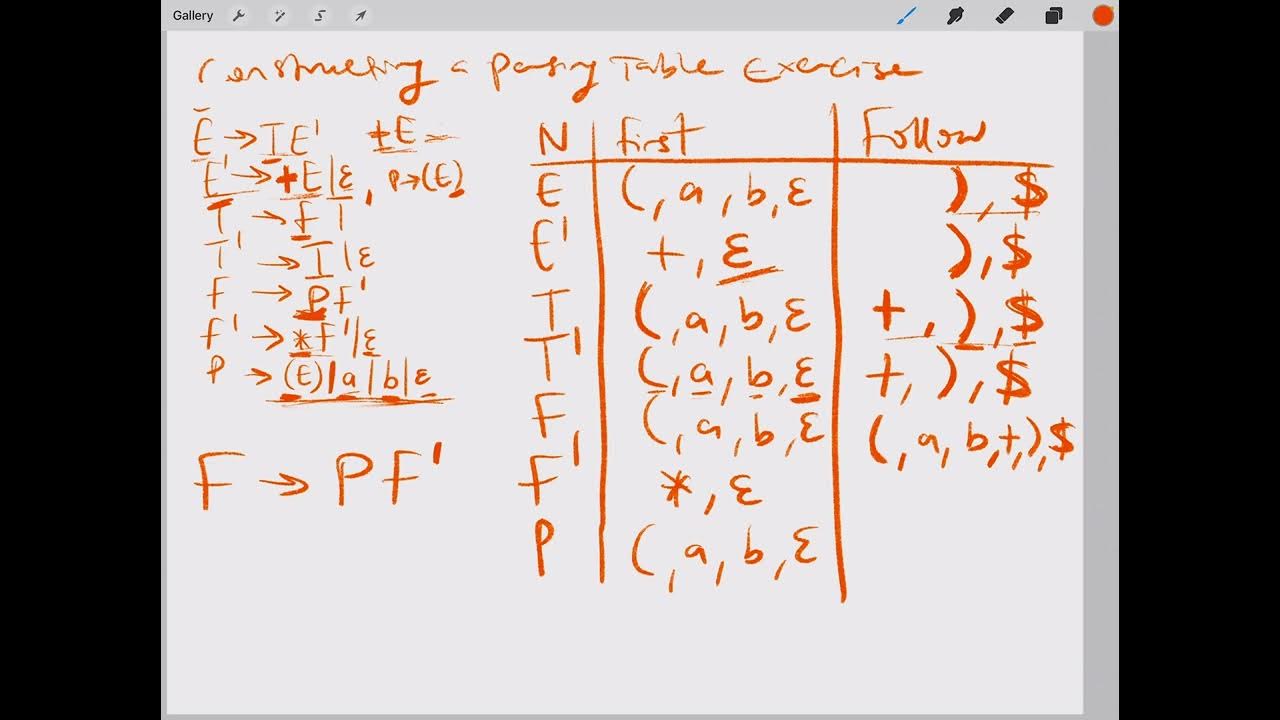 Gallery
Constructing a Parsing Table Exercise
E → TE' +E
E' → +E|ε, P→(E)
T → F T'
T' → T|ε
F → PF'
F' → *F'|ε
P → (E)|a|b|ε
F → PF'
N First Follow
E (, a, b, ε ), $
E' +, ε ), $
T (, a, b, ε +, ), $
T' (, a, b, ε +, ), $
F (, a, b, ε (, a, b, +, ), $
F' *, ε
P (, a, b, ε